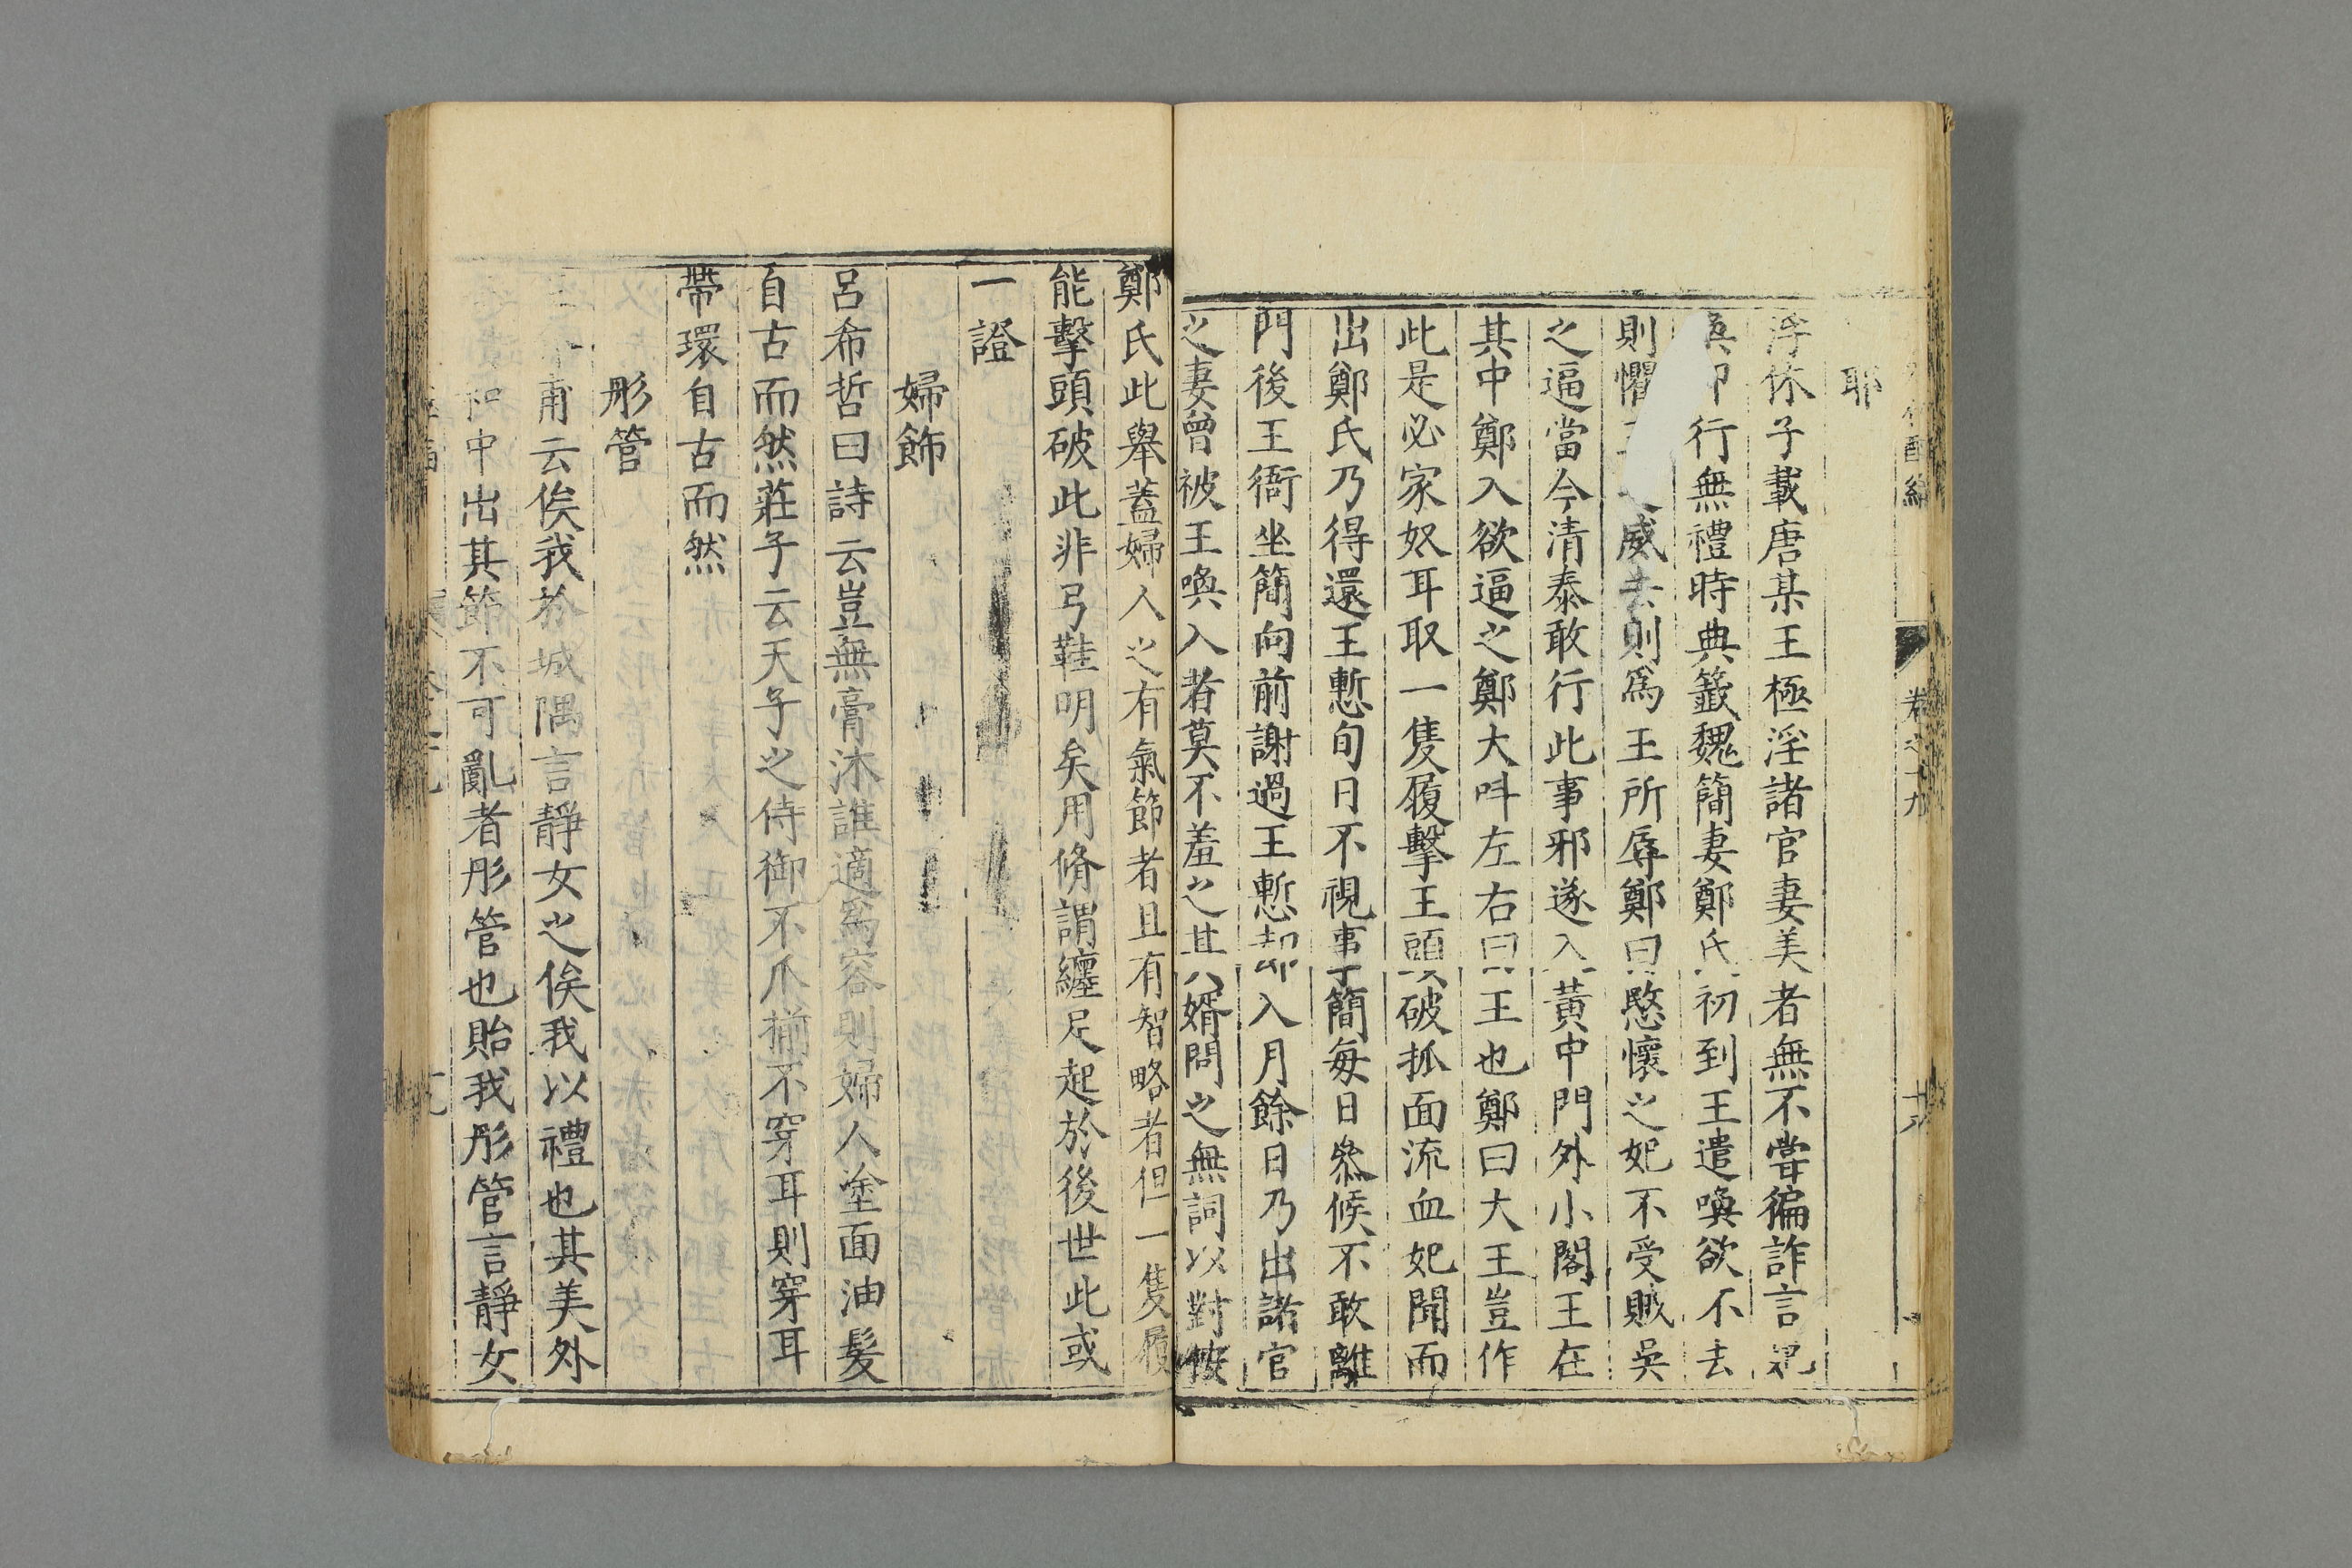 卷之十九
耶
浮休子載唐某王極淫諸官妻美者無不嘗徧詐言妃
喚卽行無禮時典籖魏簡妻鄭氏初到王遣喚欲不去
則懼 威去則爲王所辱鄭曰愍懷之妃不受賊吳
之逼當今清泰敢行此事邪遂入黃中門外小閤王在
其中鄭入欲逼之鄭大呌左右曰王也鄭曰大王豈作
此是必家奴耳取一隻履擊王頭破抓面流血妃聞而
出鄭氏乃得還王慙旬日不視事簡每日叅候不敢離
門後王衙坐簡向前謝過王慙却入月餘日乃出諸官
之妻曾被王喚入者莫不羞之其婿問之無詞以對按
鄭氏此舉蓋婦人之有氣節者且有智略者但一隻履
能擊頭破此非弓鞋明矣用脩謂纏足起於後世此或
一證
婦飾
呂希哲曰詩云豈無膏沐誰適爲容則婦人塗面油髮
自古而然莊子云天子之侍御不爪揃不穿耳則穿耳
帶環自古而然
彤管
甫云俟我於城隅言靜女之俟我以禮也其美外
和中出其節不可亂者彤管也貽我彤管言靜女